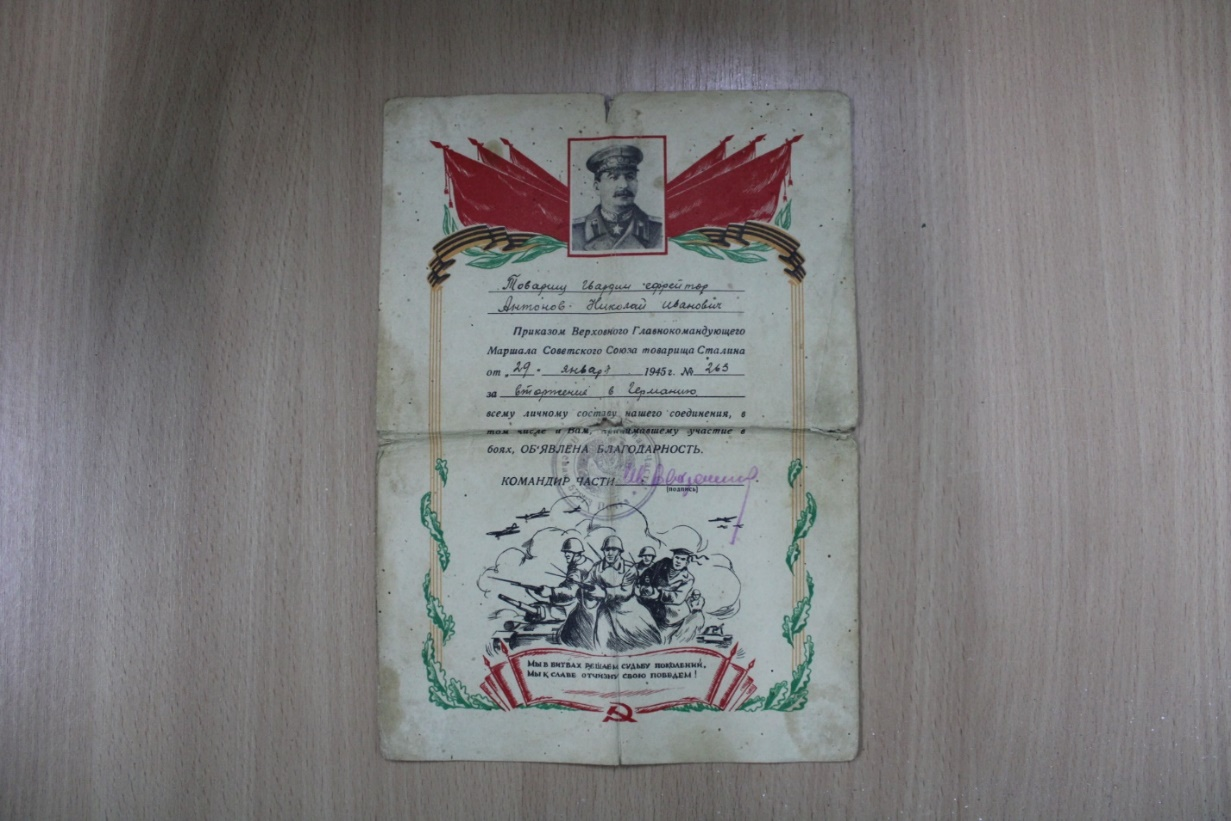 Товарищ Гвардии ефрейтор
Антонов Николай Иванович
Приказом Верховного Главнокомандующего
Маршала Советского Союза товарища Сталина
от „29" январь 1945 г. № 263
за вторжение в Германию
всему личному составу нашего соединения, в
том числе и Вам, принимавшему участие в
боях, ОБ'ЯВЛЕНА БЛАГОДАРНОСТЬ.
КОМАНДИР ЧАСТИ
(подпись)
МЫ В БИТВАХ РЕШАЕМ СУДЬБУ ПОКОЛЕНИЙ,
МЫ К СЛАВЕ ОТЧИЗНУ СВОЮ ПОВЕДЕМ!